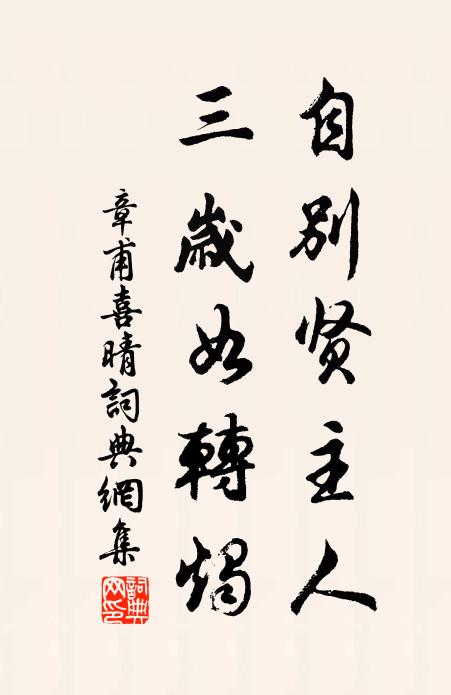 自别贤主人
三歲如轉燭
章甫喜晴詞典網集
詞典網印